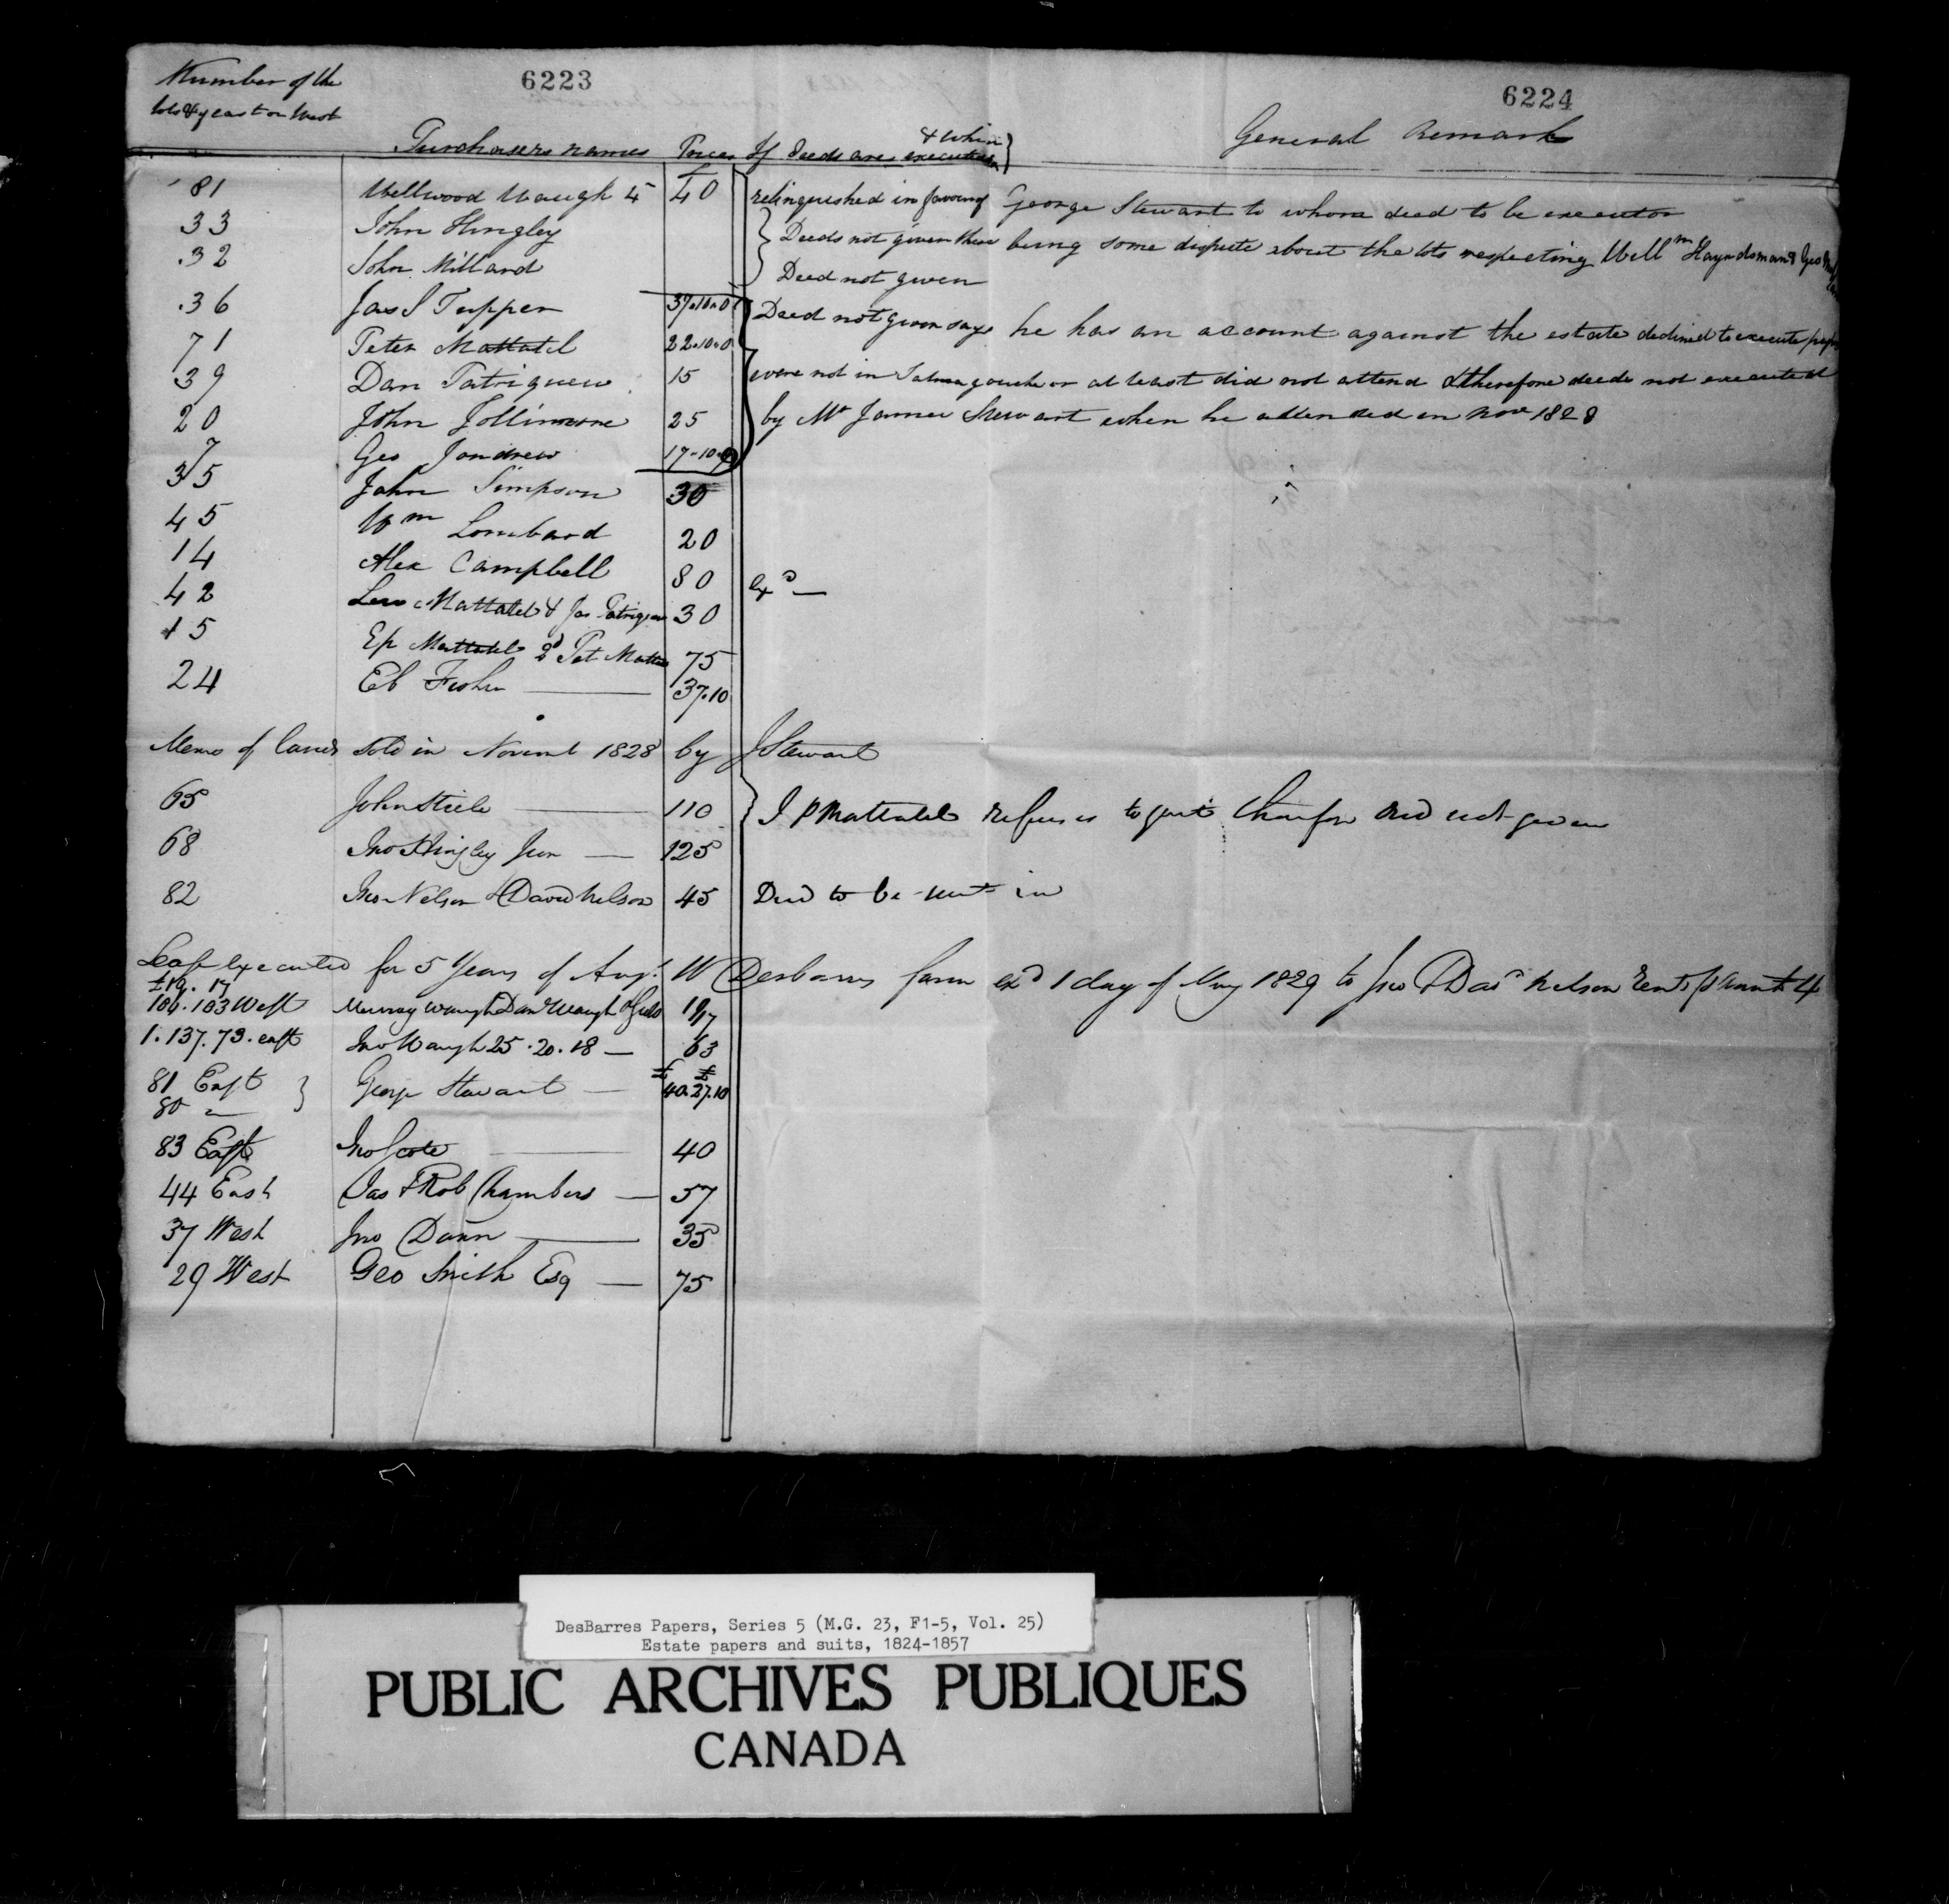 6223
6224
Number of the
lots & if east or West
Purchasers names Prices If deeds are executed & when General Remarks
81 Wellwood Waugh 4 £40 relinquished in favour of George Stewart to whom deed to be executor
33 John Hingley Deeds not given there being some dispute about the lots respecting Will^m Hayndsman & Geo
32 John Millard Deed not given
36 Jas S Tupper 37.10.0 Deed not given says he has an account against the estate declined to execute
71 Peter Mattatel 22.10.0
39 Dan Tatriquew 15 were not in Tatmagouche or at least did not attend & therefore deeds not executed
20 John Jollimore 25 by Mr James Stewart when he attended in Nov 1828
7 Geo Jondrew 17-10-0
35 John Simpson 30
45 Wm Lombard 20
14 Alex Campbell 80 Exd —
42 Lew Mattatel & Jas Patriquin 30
15 Ep Mattatel & Pet Matta 75
24 Eb Fisher — 37.10
Memo of lands sold in Novemb 1828 by J Stewart
65 John Steele — 110 J P Mattatel refuses to quit therefore deed not given
68 Jno Hingley Jun — 125
82 Jno Nelson & David Nelson 45 Deed to be sent in
Lease executed for 5 Years of Aug. W Desbarres farm exd 1 day of May 1829 to Jno & Dad Nelson Rent 4
£19.17
104.103 West Murray Waugh Dan Waugh 19/17
1.137.73. east Jno Waugh 25.20.18 — 63
81 East } George Stewart — £40. £27.10
80 "
83 East Jno Scott — 40
44 East Jas & Rob Chambers — 57
37 West Jno Dann — 35
29 West Geo Smith Esq — 75
DesBarres Papers, Series 5 (M.G. 23, F1-5, Vol. 25)
Estate papers and suits, 1824-1857
PUBLIC ARCHIVES PUBLIQUES
CANADA